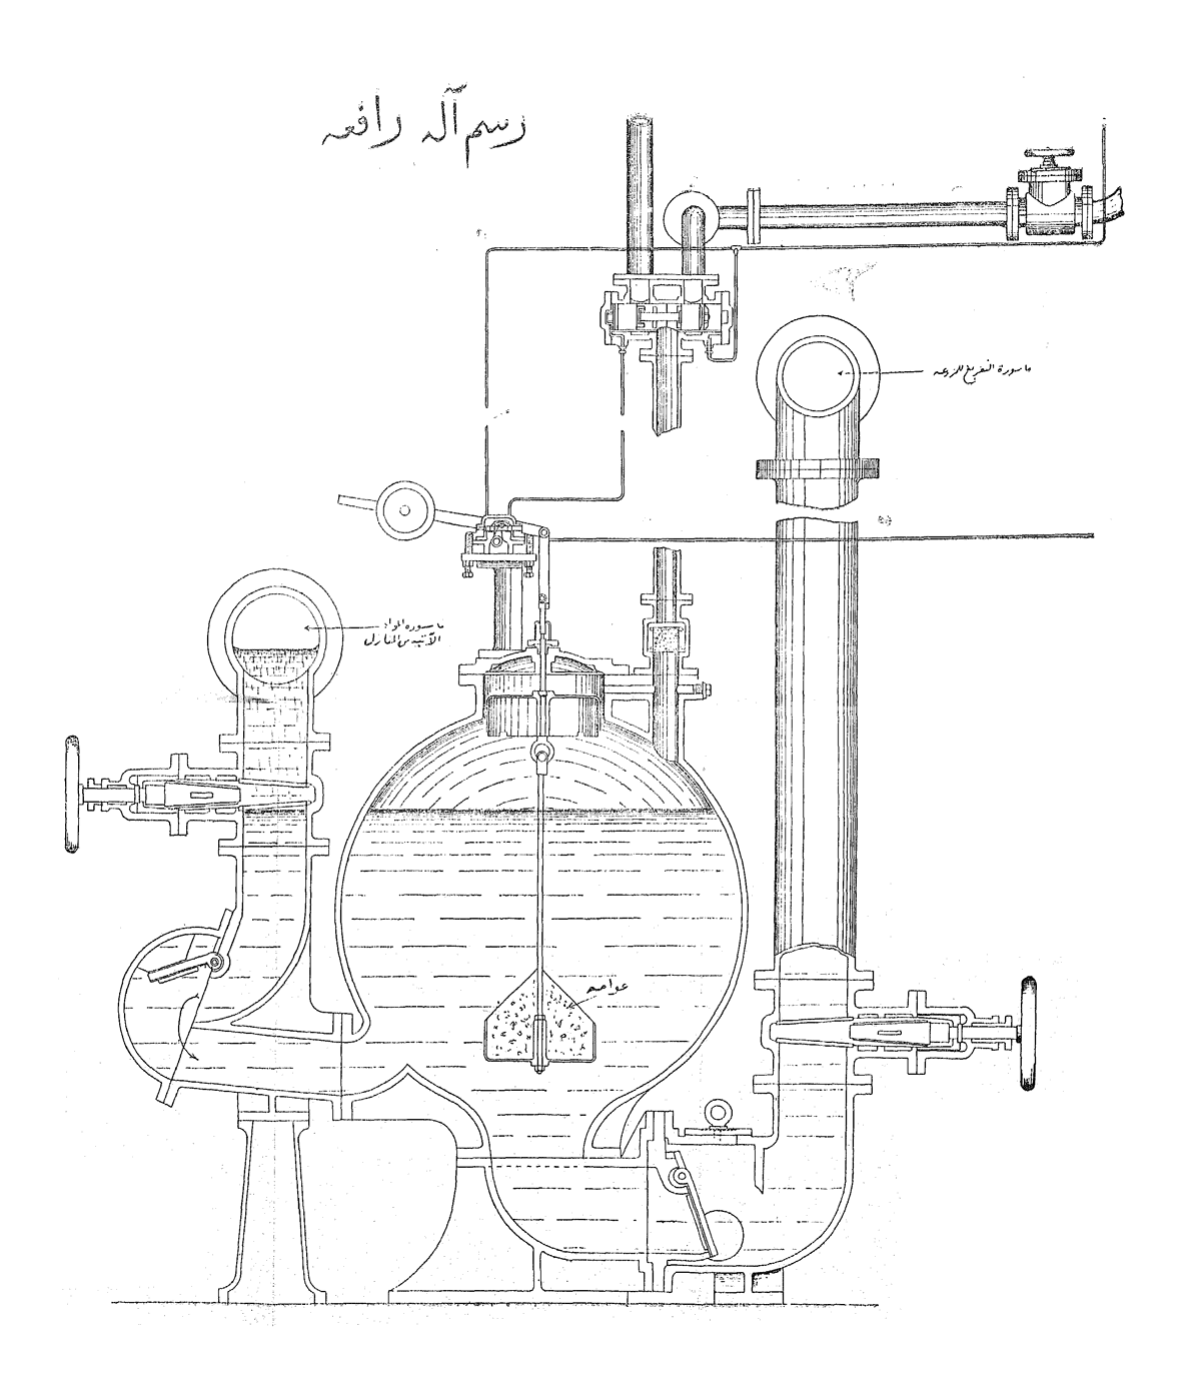 رسم آلة رافعه
ماسورة التفريغ للمزرعه
ماسورة المواد
الآتيه من المنازل
عوامه